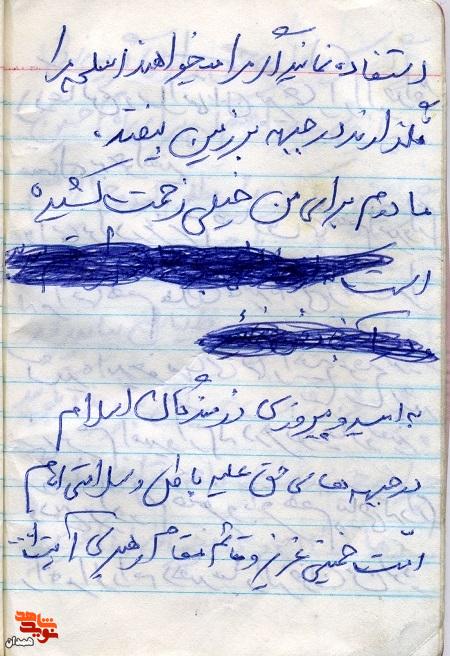 استفاده نمائید اگر مرا میخواهند اسلحه مرا
نگذارند در جبهه بر زمین بیفتد.
مادرم برای من خیلی زحمت کشیده
است
به امید و پیروزی رزمندگان اسلام
در جبهه های حق علیه باطل و سلامتی امام
امت خمینی عزیز و قائم مقام رهبری آیت الله
نوید شاهد
همدان